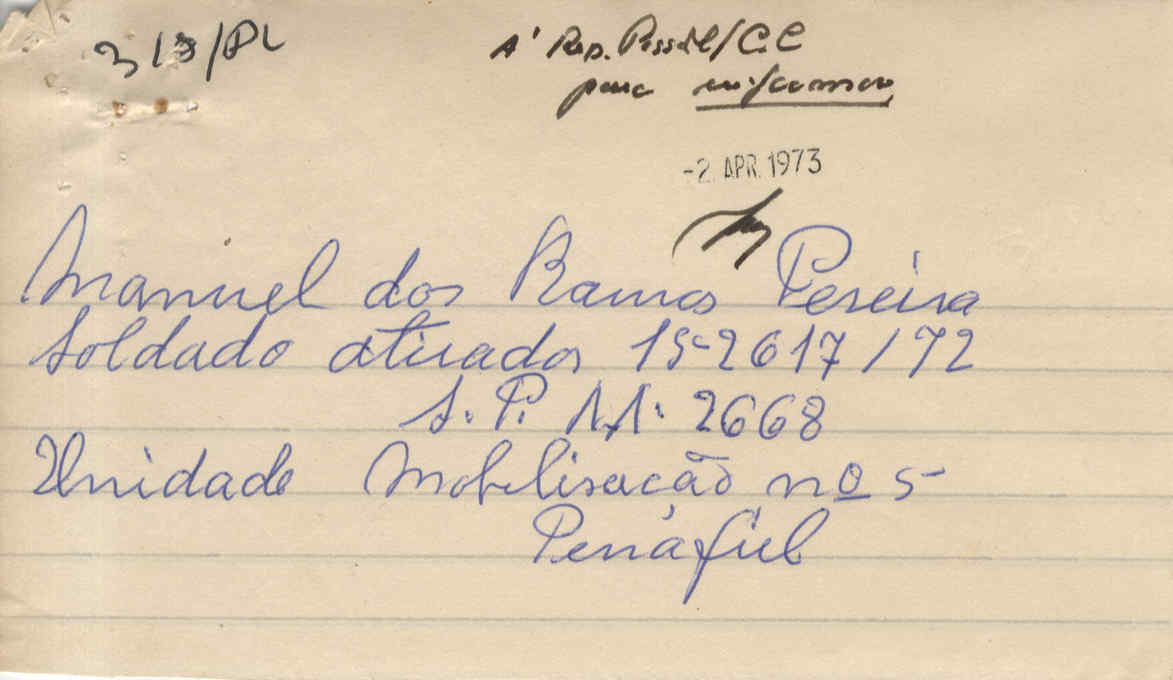 313/PL
A' Rep. Pessoal/CC
para informar
-2. APR. 1973
Manuel dos Ramos Pereira
Soldado atirador 15-2617/72
S. P. M. 2668
Unidade Mobelisação nº 5-
Penáfiel